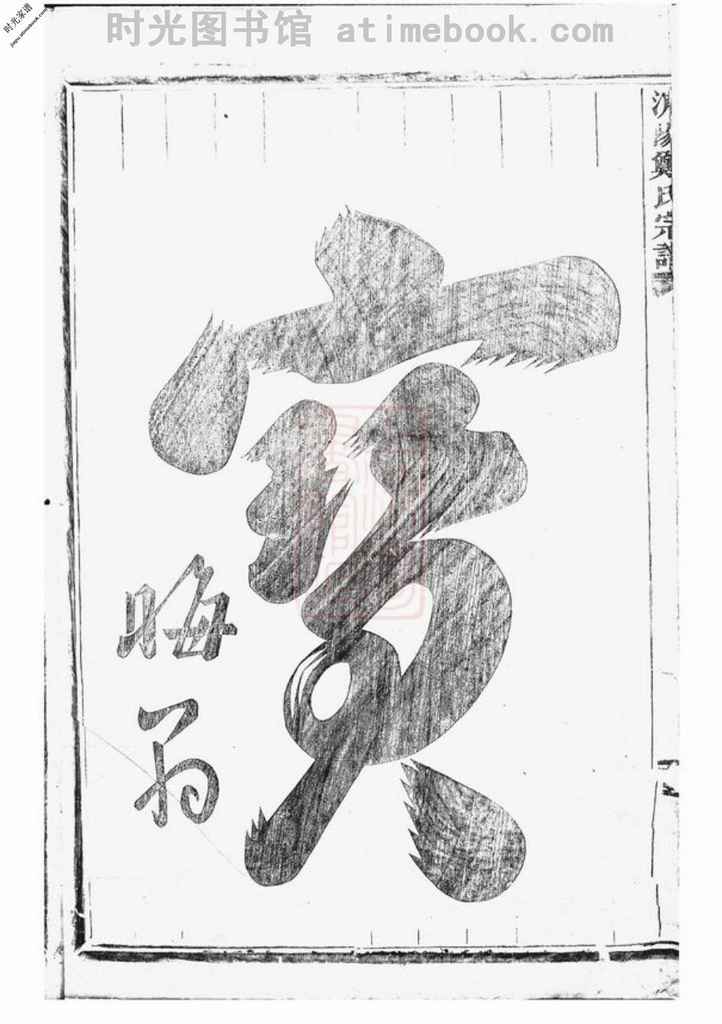 时光图书馆 atimebook.com
时光家谱
鄭氏宗譜
寶
晦翁